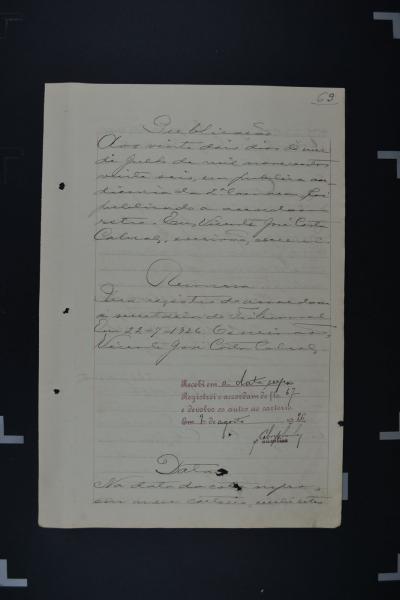 69
Publicação
Aos vinte dois dias do mez
de Julho de mil novecentos
vinte seis, em publica au
diencia da 2ª Camara foi
publicado o accordam
retro. Eu, Vicente José Costa
Cabral, escrivão, escrevi.
Remessa
Para registro do accordam
a secretaria do Tribunal
Em 22-7-1926. O escrivão,
Vicente José Costa Cabral,
Recebi em a data supra
Registrei o accordam de fls. 67
e devolvo os autos ao cartorio
Em 2 de agosto 1926
Data
Na data da cota supra,
em meu cartorio,